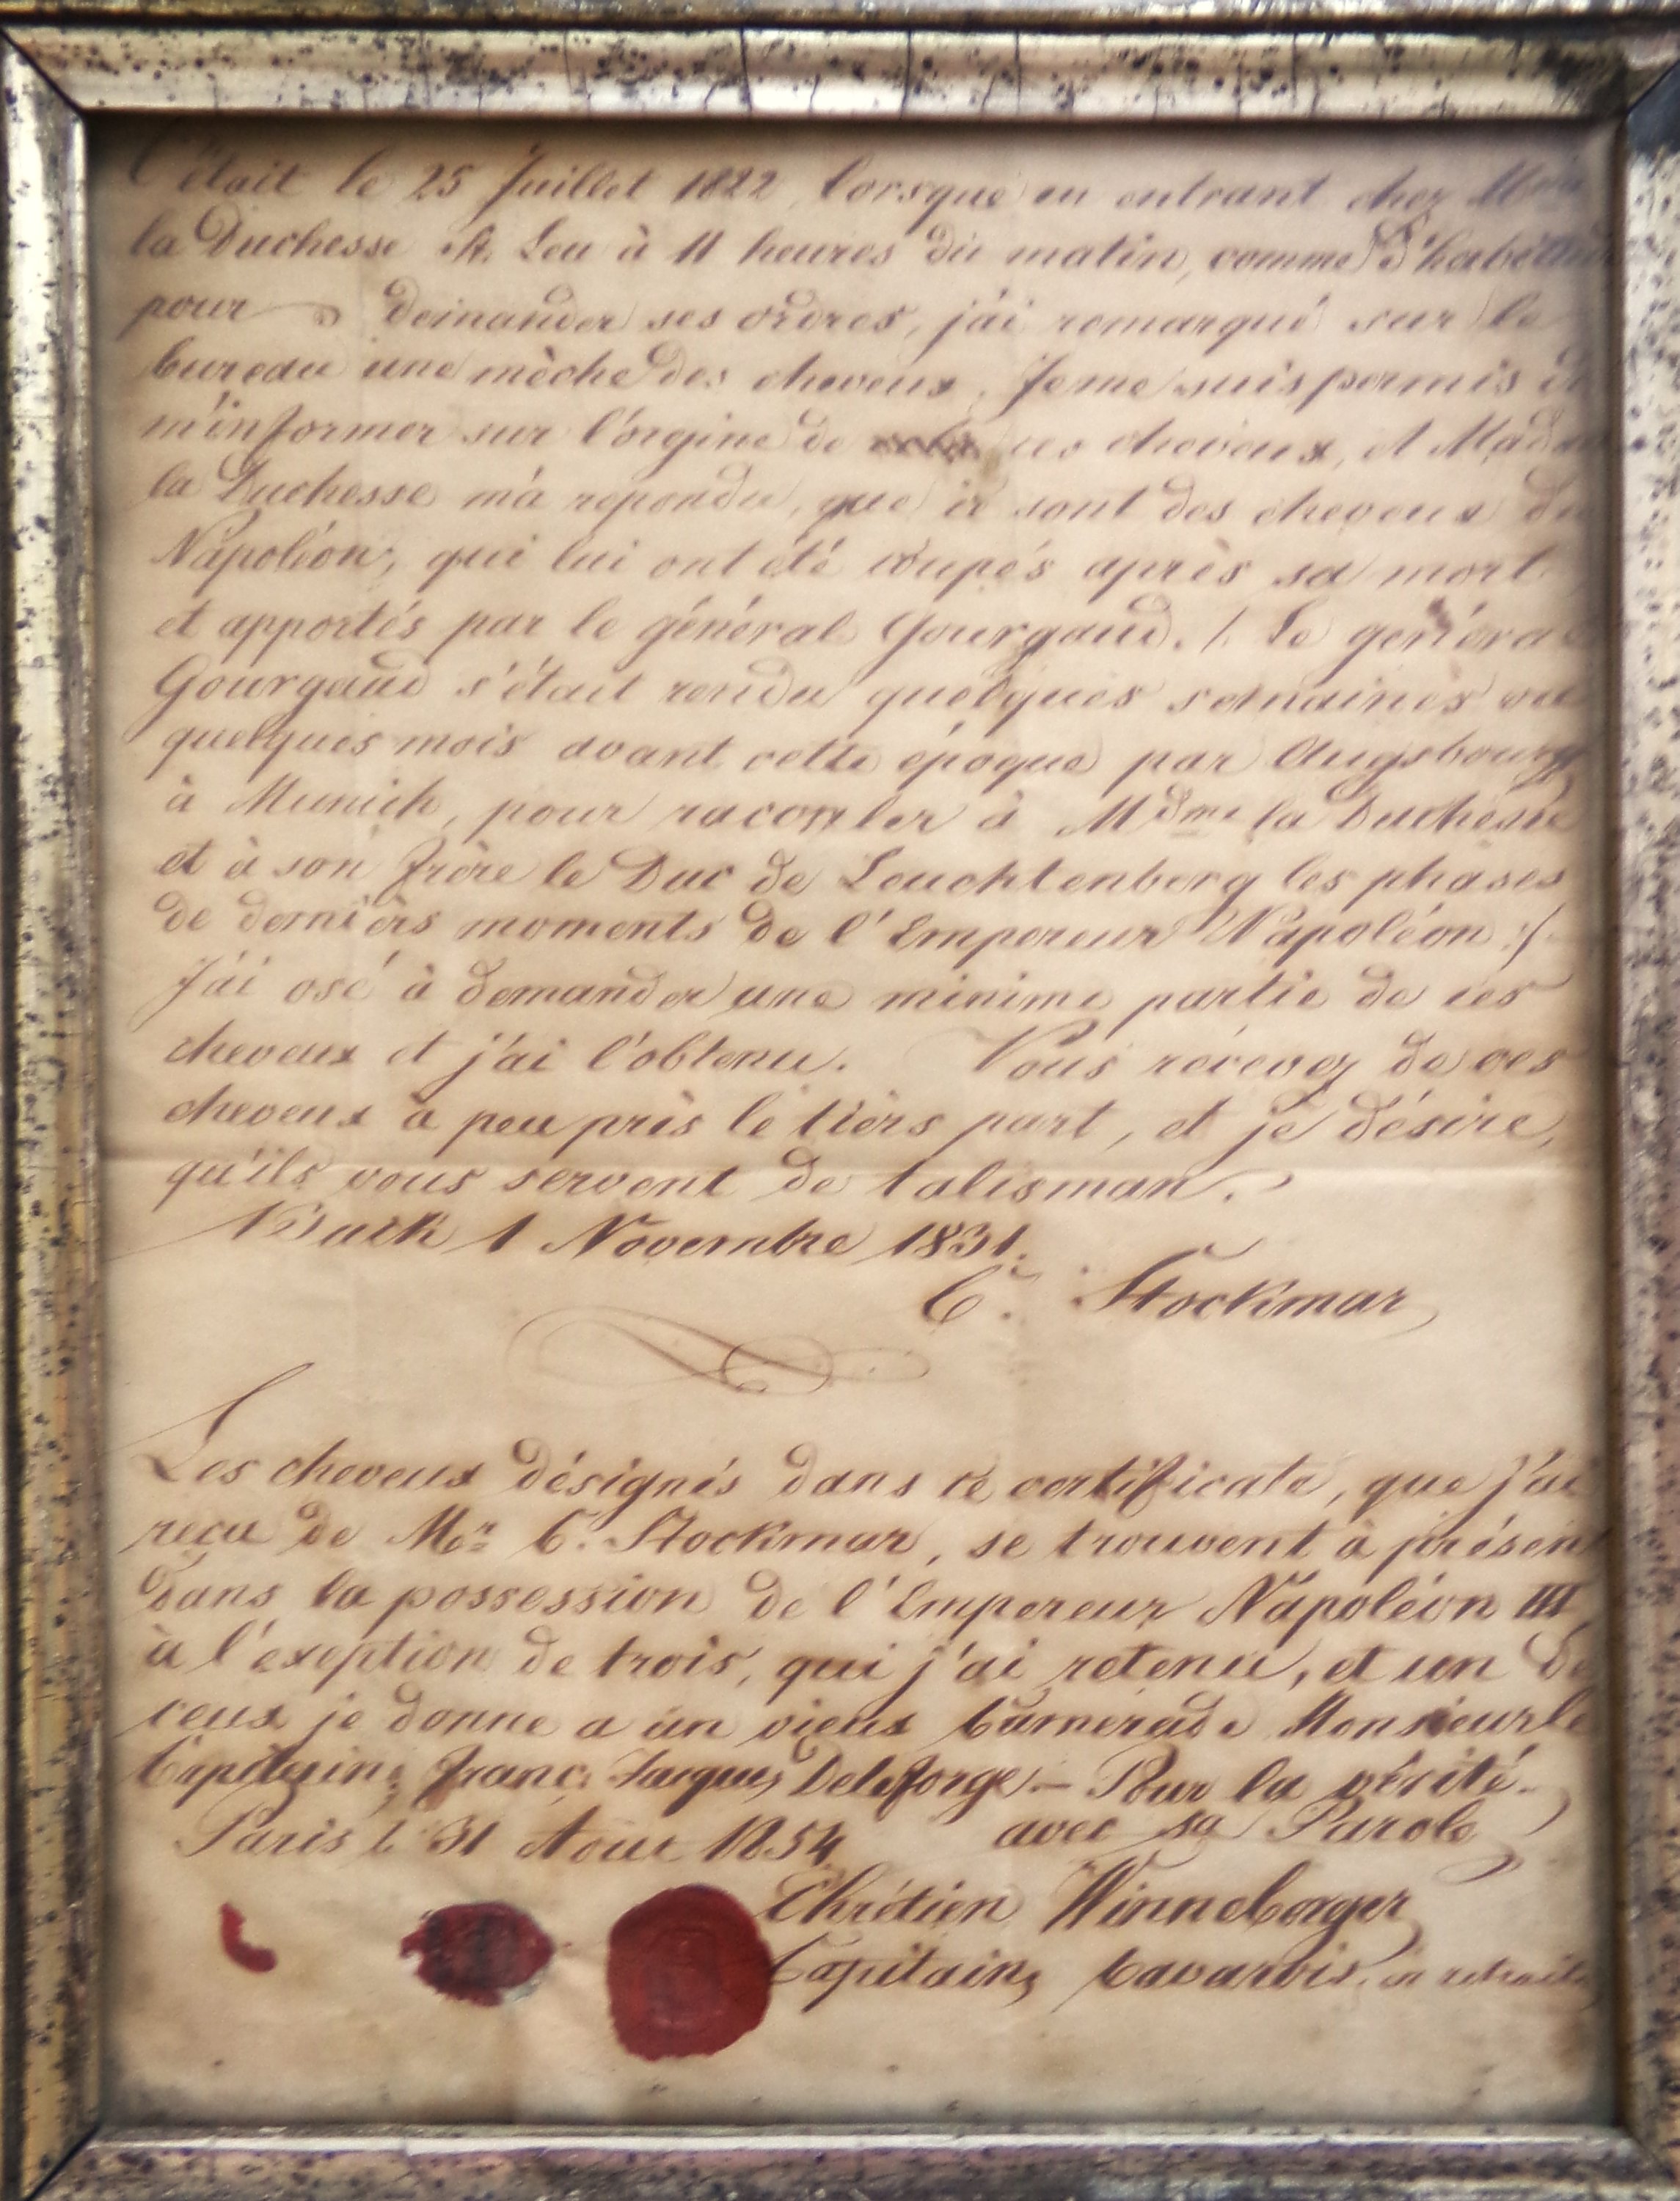 C'était le 25 Juillet 1822, lorsque en entrant chez
la Duchesse St. Leu à 11 heures du matin, comme d'habitude
pour demander ses ordres, j'ai remarqué sur le
bureau une mèche des cheveux. Je me suis permis
m'informer sur l'orgine de ces cheveux, et
la Duchesse m'a repondu, que ce sont des cheveux
Napoléon, qui lui ont été coupés après sa mort
et apportés par le général Gourgaud. /: Le général
Gourgaud s'était rendu quelques semaines ou
quelques mois avant cette époque par Augsbourg
à Munich, pour raconter à Mdme la Duchesse
et à son frère le Duc de Leuchtenberg les phases
de derniers moments de l'Empereur Napoléon :/
J'ai osé à demander une minime partie de ces
cheveux et j'ai l'obtenu. Vous recevez de ces
cheveux à peu près le tièrs part, et je désire,
qu'ils vous servent de talisman.
1 Novembre 1831.
C. Stockmar
Les cheveux désignés dans ce certificate, que j'ai
reçu de Mr C. Stockmar, se trouvent à présent
dans la possession de l'Empereur Napoléon III
à l'exeption de trois, qui j'ai retenu, et un de
ceux je donne a un vieux Camerade Monsieur le
Capitaine Franç. Jacques Deleforge. – Pour la vérité.
avec sa Parole
Paris l 31 Aout 1854
Chrétien Winneberger
Capitaine bavarois, en retraite